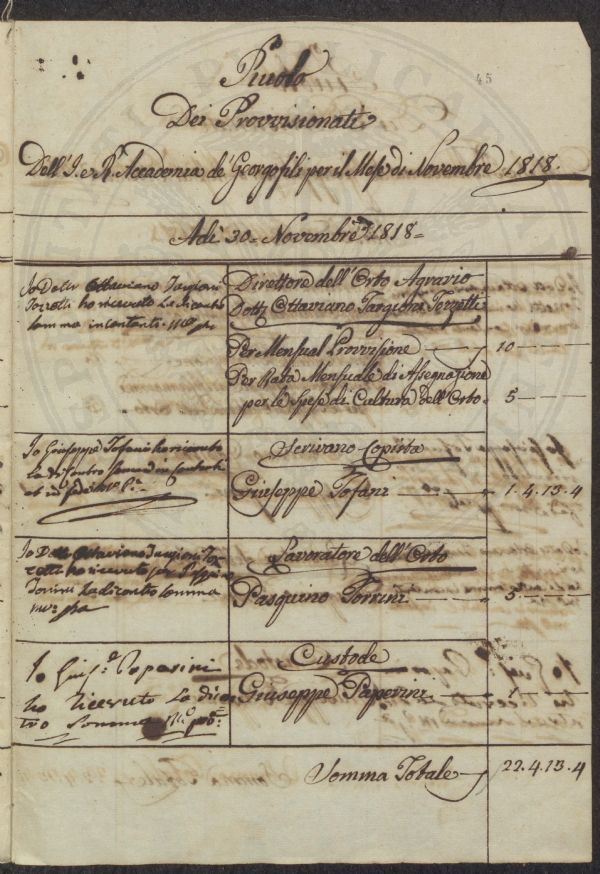 45
Ruolo
Dei Provvisionati
Dell'I. e R. Accademia de' Georgofili per il Mese di Novembre 1818.
Adì 30. Novembre 1818=
Io Dottr Ottaviano Targioni
Tozzetti ho ricevuto la dicontro
somma in contanti. Mo ppa
Direttore dell'Orto Agrario
Dott. Ottaviano Targioni Tozzetti
Per Mensual Provvisione 10
Per Rata Mensuale di Assegnazione
per le Spese di Cultura dell'Orto 5
Io Giuseppe Tofani ho ricevuto
la di contro somma in contanti
Scrivano Copista
Giuseppe Tofani 1.4.13.4
Io Dottr Ottaviano Targioni Toz
zetti ho ricevuto per Pasquino
Torrini la dicontro somma
mo ppa
Lavoratore dell'Orto
Pasquino Torrini 5
Io Giuse Paperini
ho ricevuto la dicon
tro somma Mo ppa
Custode
Giuseppe Paperini 1
Somma Totale 22.4.13.4